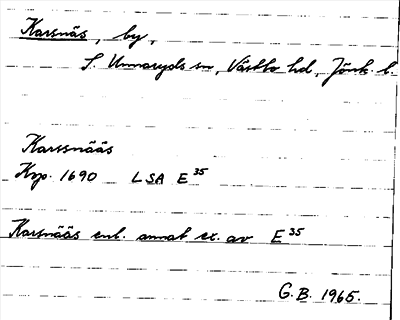 Karsnäs, by,
S. Unnaryds sn, Västbo hd, Jönk. l.
Karssnääs
Krp. 1690 LSA E 35
Karsnääs enl. annat ex. av E 35
G. B. 1965.